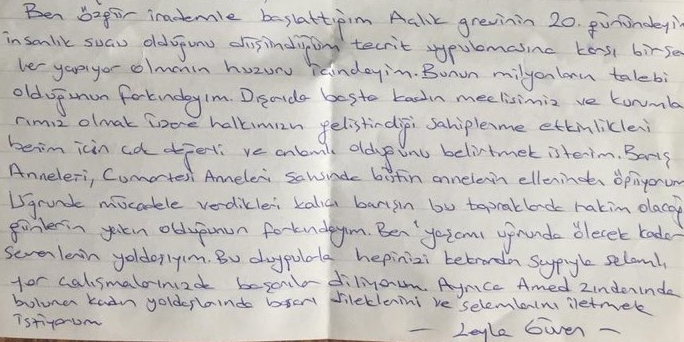 Ben özgür irademle başlattığım Açlık grevinin 20. günündeyim
insanlık suçu olduğunu düşündüğüm tecrit uygulamasına karşı birşe
ler yapıyor olmanın huzuru içindeyim. Bunun milyonların talebi
olduğunun farkındayım. Dışarıda başta kadın meclisimiz ve kurumla
rımız olmak üzere halkımızın geliştirdiği sahiplenme etkinlikleri
benim için çok değerli ve anlamlı olduğunu belirtmek isterim. Barış
Anneleri, Cumartesi Anneleri şahsında bütün annelerin ellerinden öpüyorum
Uğrunda mücadele verdikleri kalıcı barışın bu topraklarda hakim olacağı
günlerin yakın olduğunun farkındayım. Ben 'yaşamı uğrunda ölecek kadar
sevenlerin yoldaşıyım. Bu duygularla hepinizi tekrardan saygıyla selamlı
yor çalışmalarınızda başarılar diliyorum. Ayrıca Amed zindanında
bulunan kadın yoldaşlarında başarı dileklerini ve selamlarını iletmek
istiyorum
— Leyla Güven —